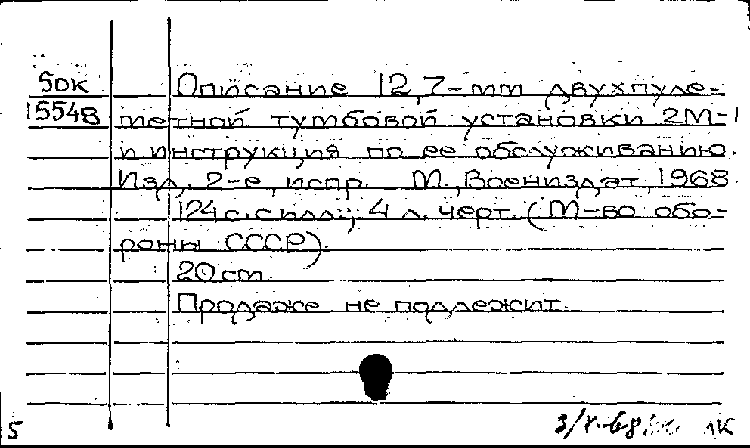 50к Описание 12,7-мм двухпуле-
15548 метной тумбовой установки 2М-1
и инструкция по ее обслуживанию.
Изд. 2-е, испр. М., Воениздат, 1968.
124 с. с илл.; 4 л. черт. (М-во обо-
роны СССР).
20 cm
Продаже не подлежит.
5
ЛК